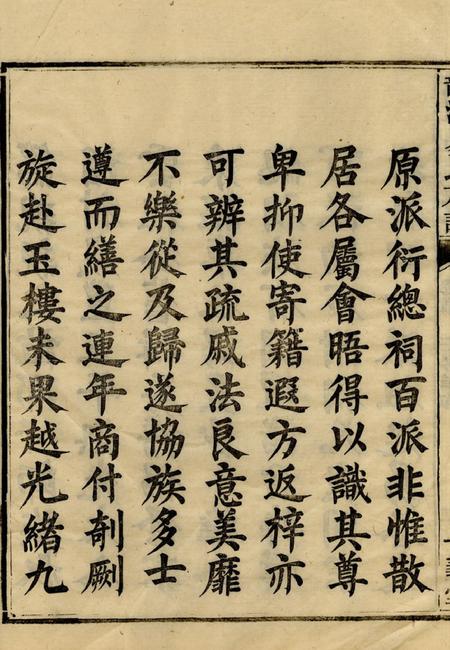 原派衍總祠百派非惟散
居各屬會晤得以識其尊
卑抑使寄籍遐方返梓亦
可辨其疏戚法良意美靡
不樂從及歸遂協族多士
遵而繕之連年商付剞劂
旋赴玉樓未果越光緒九